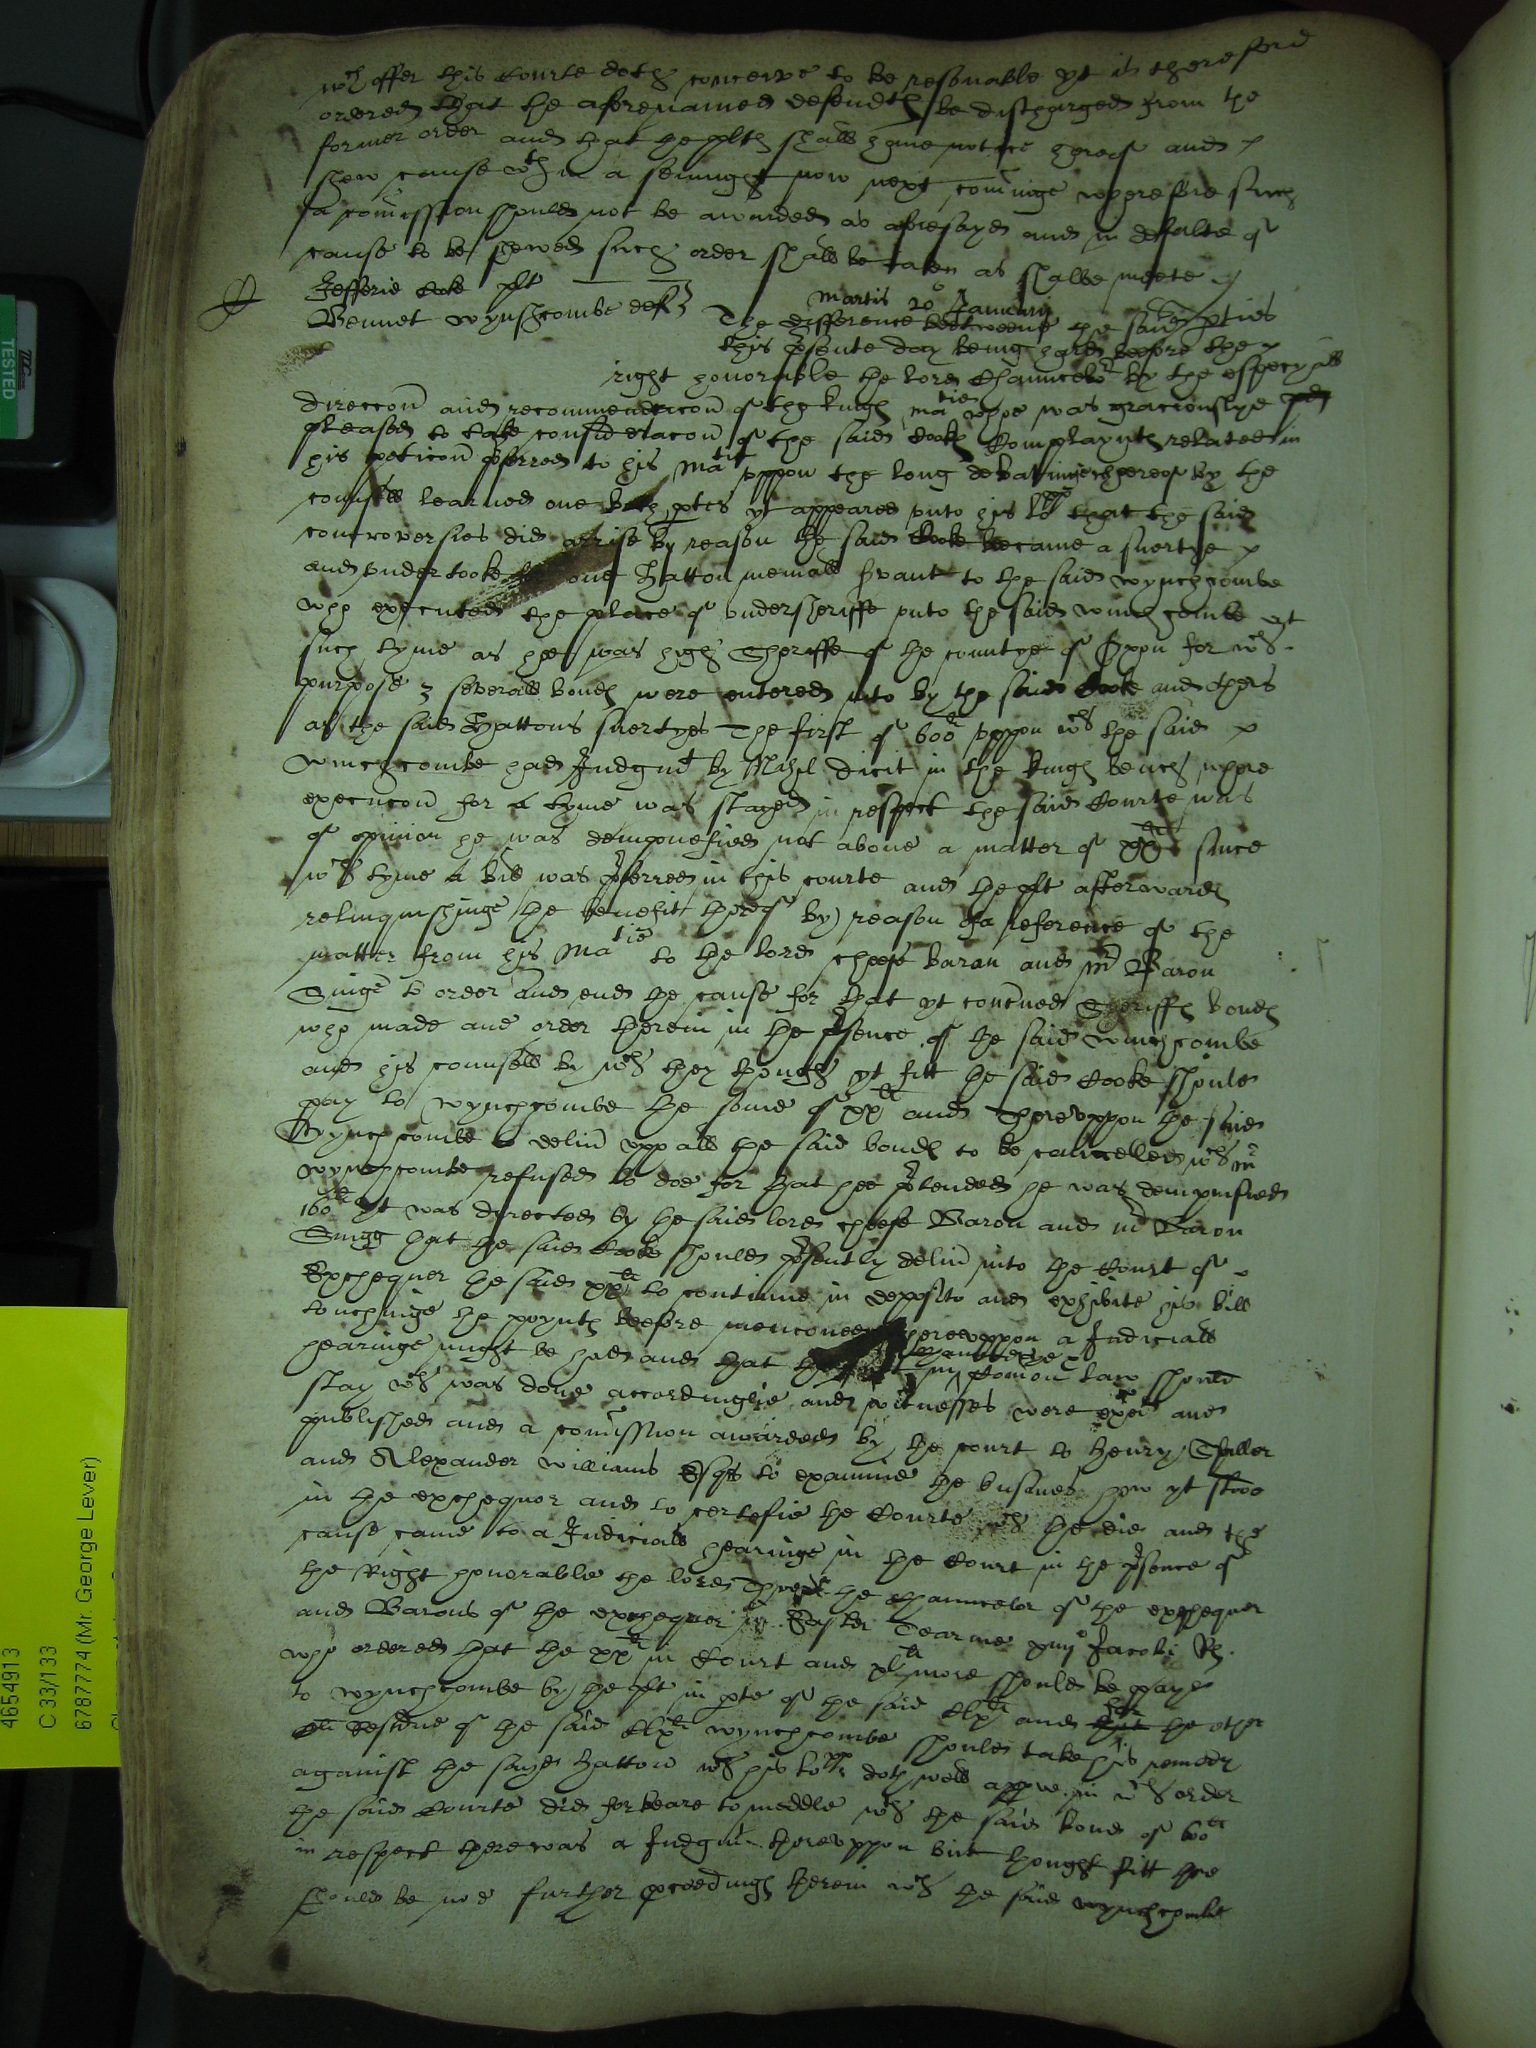 wch offer this Courte doth conceive to be resonable yt is therefore
ordered that the aforenamed defendtes be discharged from the
former order and that the pltes shall have notice hereof and
shew cause wth in a sennight now next cominge wherefore such
a comission should not be awarded as aforesayd and in defalte of
cause to be shewed such order shall be taken as shalbe meete
Jefferie Cooke plt
Bennet Wynshcombe deft
Martis 20 January
The difference betweene the said pties
this psente day being hard before the
right honorable the lord Chauncelor by the especyall
direccon and recommendacon of the kinges matie whoe was graciouslye
pleased to take consideracon of the said Cookes Complayntes related in
his peticon pferred to his Matie uppon the long debatinge thereof by the
counsell learned one both ptes yt appeared unto his lpp that the said
controversies did arise by reason the said Cooke became a suertye
and undertooke for one Hatton meniall srvant to the said Wynchcombe
who executed the place of undersheriffe unto the said Winchcombe at
such tyme as hee was high Sheriffe of the countye of Oxon for wch
purpose 3 severall bondes were entered into by the said Cooke and others
as the said Hattons suertyes The first of 600li uppon wch the said
Winchcombe had Judgmt by Nihil dicit in the kinges bench where
execucon for a tyme was stayed in respect the said Courte was
of opinion he was dempnefied not above a matter of xxli since
wch tyme a bill was pferred in this courte and the plt afterwardes
relinquishinge the benefitt thereof by reason of a reference of the
matter from his Matie to the lord cheefe baron and Mr Baron
Snigge to order and end the cause for that yt concrned Sheriffes bondes
who made one order therein in the psence of the said Winchcombe
and his counsell by wch they thought yt fitt the said Cooke should
pay to Wynchcombe the some of xxli and Thereuppon the said
Wynchcombe to delivr upp all the said bondes to be cancelled wch Mr
Wynchcombe refused to doe for that hee ptended he was dempnified
160li yt was directed by the said lord cheefe Baron and Mr Baron
Snigg that the said Cooke should psently delivr into the Court of
Exchequer the said xxli to continue in deposito and exhibite his bill
touchinge the poyntes beefore mencioned whereuppon a Judiciall
hearinge might be had and that the in Comon law should
stay wch was done accordinglie and witnesses were exed and
published and a comission awarded by the court to Henry Spiller
and Alexander Williams Esqrs to examine the busines how yt stood
in the exchequor and to certefie the Courte wch they did and the
cause came to a Judiciall hearinge in the Court in the psence of
the Right honorable the lord Threr the Chauncelor of the exchequer
and Barons of the exchequer in Easter Tearme Jacobi Rs
who ordered that the xxli in Court and xlli more should be payd
to Wynchcombe by the plt in pte of the said Clxli and for the other
residue of the said Clxli Wynchcombe should take his remedy
against the sayd Hatton wch his lopp doth well approve in wch order
the said Courte did forbeare to meddle wth the said bond of 600li
in respect there was a Judgmt thereuppon but thought fitt there
should be noe further proceedinges therein wch the said Wynchcombe
TESTED
4654913
C 33/133
6787774 (Mr. George Lever)